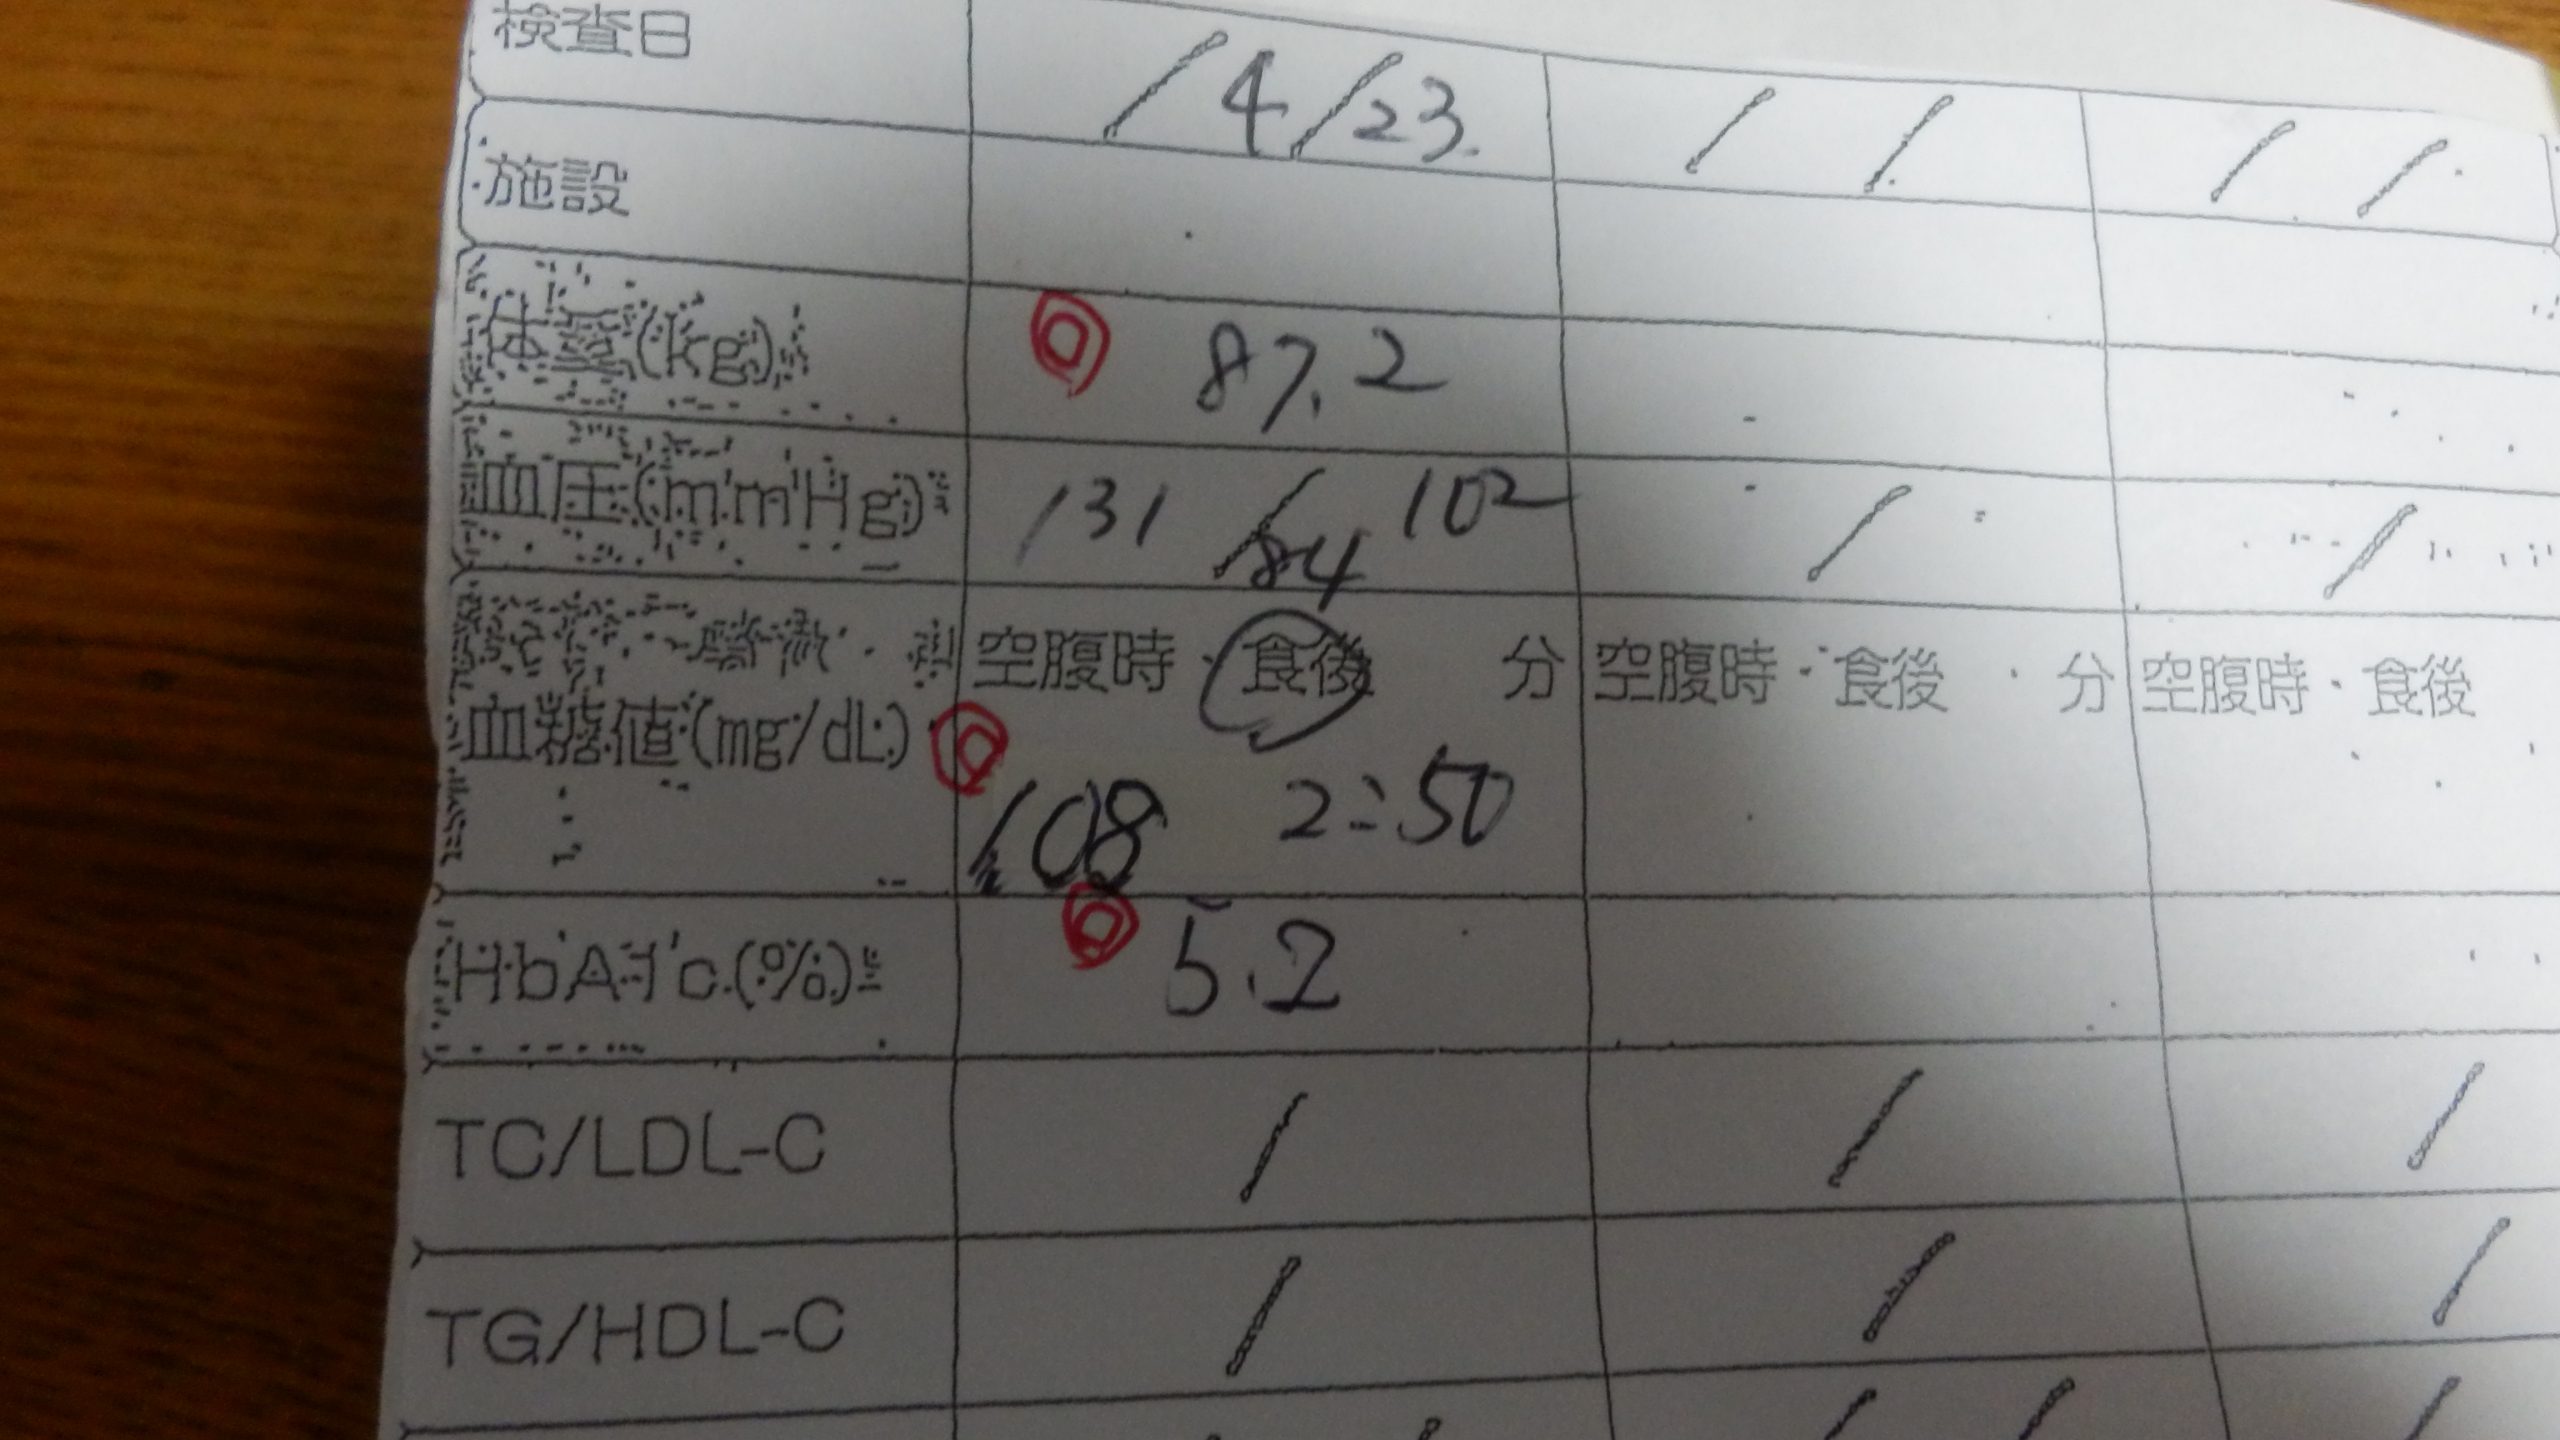 検査日 / 4/23. / / / /
施設
体重(kg) 87.2
血圧(mmHg) 131/84 102 / /
空腹時・食後 分 空腹時・食後 分 空腹時・食後
血糖値(mg/dL)
108 2:50
HbA1c(%) 5.2
TC/LDL-C / / /
TG/HDL-C / / /